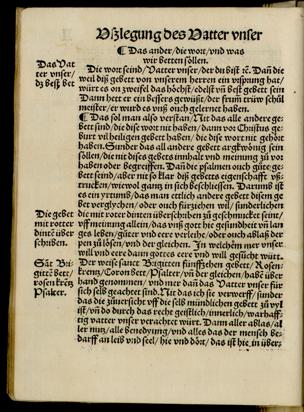 Vßlegung des Vatter vnser
¶ Das ander/die wort/vnd was
wir betten söllen.
Das Vat
ter vnser/
dz best bet
Die wort seind/Vatter vnser/der du bist ꝛc̄. Dañ die
weil diß gebett von vnserem herren ein vrspung hat/
würt es on zweifel das höchst/edelst vñ best gebett sein
Dann hett er ein bessers gewüßt/der frum trüw schůl
meister/er wurd es vnß ouch gelernet haben.
¶ Das sol man also verstan/Nit das alle andere ge-
bett sind/die disse wort nit haben/dann vor Christus ge
burt vil heiligen gebett haben/die diß wort nit gehört
haben. Sunder das all andere gebett argkwönig sein
söllen/die nit dises gebetts innhalt vnd meinung zů vor
haben oder begreiffen. Dañ die psalmen ouch gůte ge-
bett seind/aber nit so klar diß gebetts eigenschafft vß-
trucken/wiewol gantz in sich beschliessen. Darumb ist
es ein yrtumb/das man etlich andere gebett disem ge
bet verglychen/oder ouch fürziehen wil/sunderlichen
Die gebet
mit roter
dinte über
schriben.
die mit roter dinten überschriben zů geschmuckt seint/
vff meinung allein/das vnß got hie gesundheit vñ lan
ges leben/güter vnd eere verliehe/oder ouch ablaß der
pen zů lösen/vnd der gleichen. In welchem mer vnser
will vnd eere dann gottes eere vnd will gesücht würt.
Sāt Bri-
gittē bett/
rosen krētz
Psalter.
Der weise sanct Brigitten fünffzehen gebett/Rosen-
krentz/Corona Gottes/Psalter/vñ der gleichen/habē über
hand genommen/vnd mer dañ das Vatter vnser für
sich selbs geachtet sind. Nit das ich sie verwerff/sunder
das die zůuersicht vff die selb mündlichen gebett zů vyl
ist/vñ do durch das recht geistlich/innerlich/warhaff-
tig vatter vnser verachtet würt. Dann aller ablas/al
ler nutz/alle benedyung/vnd alles das der mensch be-
darff an leib vnd seel/hie vnd dört/das ist hie in über-